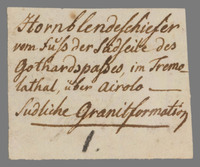 Hornblendeschiefer
vom Fuß der Südseite des
Gothardspaßes, im Tremo-
lathal, über Airolo —
Südliche Granitformation
1.